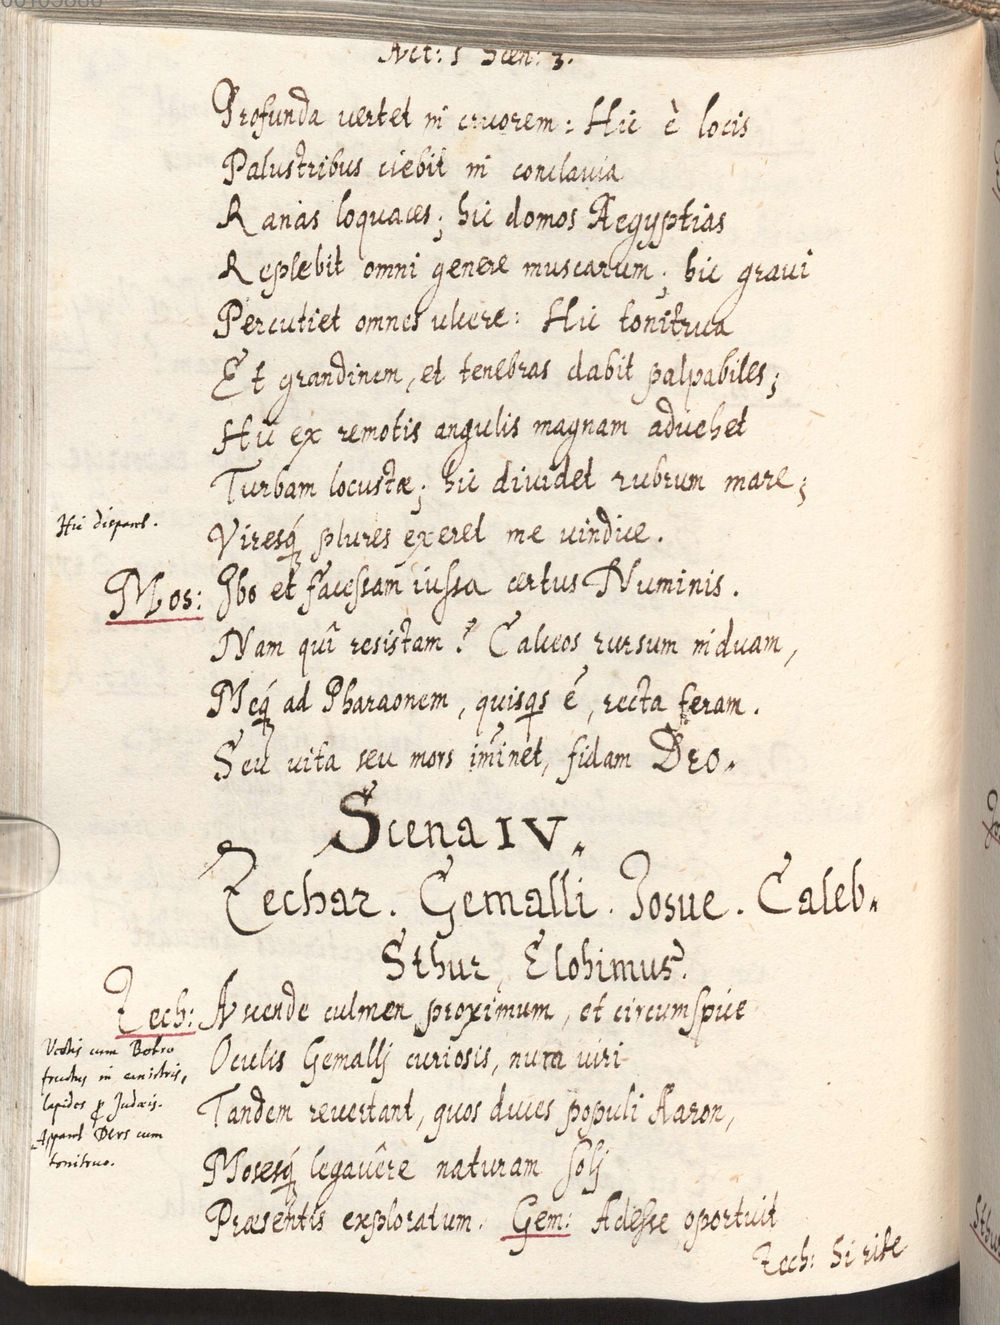 Act: 1 Scen: 3.
Profunda vertet in cruorem: Hic è locis
Palustribus ciebit in conclavia
Ranas loquaces; hic domos Aegyptias
Replebit omni genere muscarum; hic gravi
Percutiet omnes ulcere: Hic tonitrua
Et grandinem, et tenebras dabit palpabiles;
Hic ex remotis angulis magnam advehet
Turbam locustæ; hic dividet rubrum mare;
Hic disparet.
Viresq́ plures exeret me vindice.
Mos: Ibo et facessam iussa certus Numinis.
Nam quî resistam? Calceos rursum induam,
Meq́ ad Pharaonem, quisqs ẽ, recta feram.
Seu vita seu mors im̃inet, fidam Deo.
Scena IV.
Zechar. Gemalli. Iosue. Caleb.
Sthur, Elohimus.
Zech: Ascende culmen proximum, et circumspice
Vectis cum Botro
fructus in canistris,
lapides p Judæis.
Apparet Deus cum
tonitruo.
Oculis Gemallj curiosis, num viri
Tandem revertant, quos duces populi Aaron,
Mosesq́ legavêre naturam solj
Præsentis exploratum. Gem: Adesse oportuit
Zech: Si rite